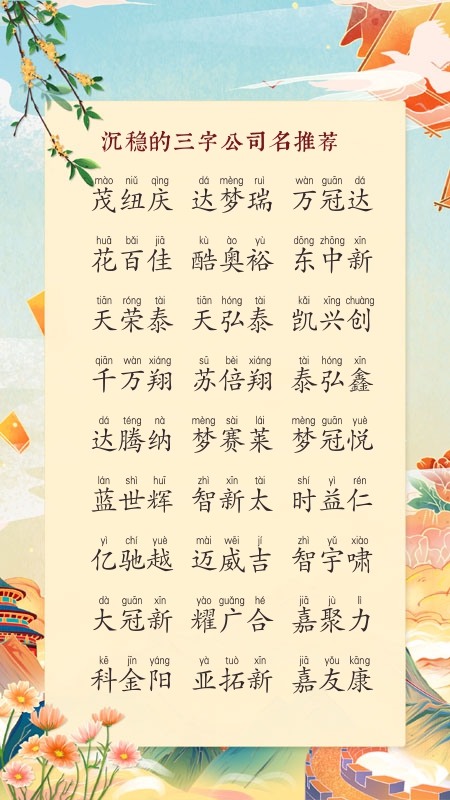 沉稳的三字公司名推荐
mào niǔ qìng dá mèng ruì wàn guān dá
茂纽庆 达梦瑞 万冠达
huā bǎi jiā kù ào yù dōng zhōng xīn
花百佳 酷奥裕 东中新
tiān róng tài tiān hóng tài kǎi xīng chuàng
天荣泰 天弘泰 凯兴创
qiān wàn xiáng sū bèi xiáng tài hóng xīn
千万翔 苏倍翔 泰弘鑫
dá téng nà mèng sài lái mèng guān yuè
达腾纳 梦赛莱 梦冠悦
lán shì huī zhì xīn tài shí yì rén
蓝世辉 智新太 时益仁
yì chí yuè mài wēi jí zhì yǔ xiào
亿驰越 迈威吉 智宇啸
dà guān xīn yào guǎng hé jiā jù lì
大冠新 耀广合 嘉聚力
kē jīn yáng yà tuò xīn jiā yǒu kāng
科金阳 亚拓新 嘉友康